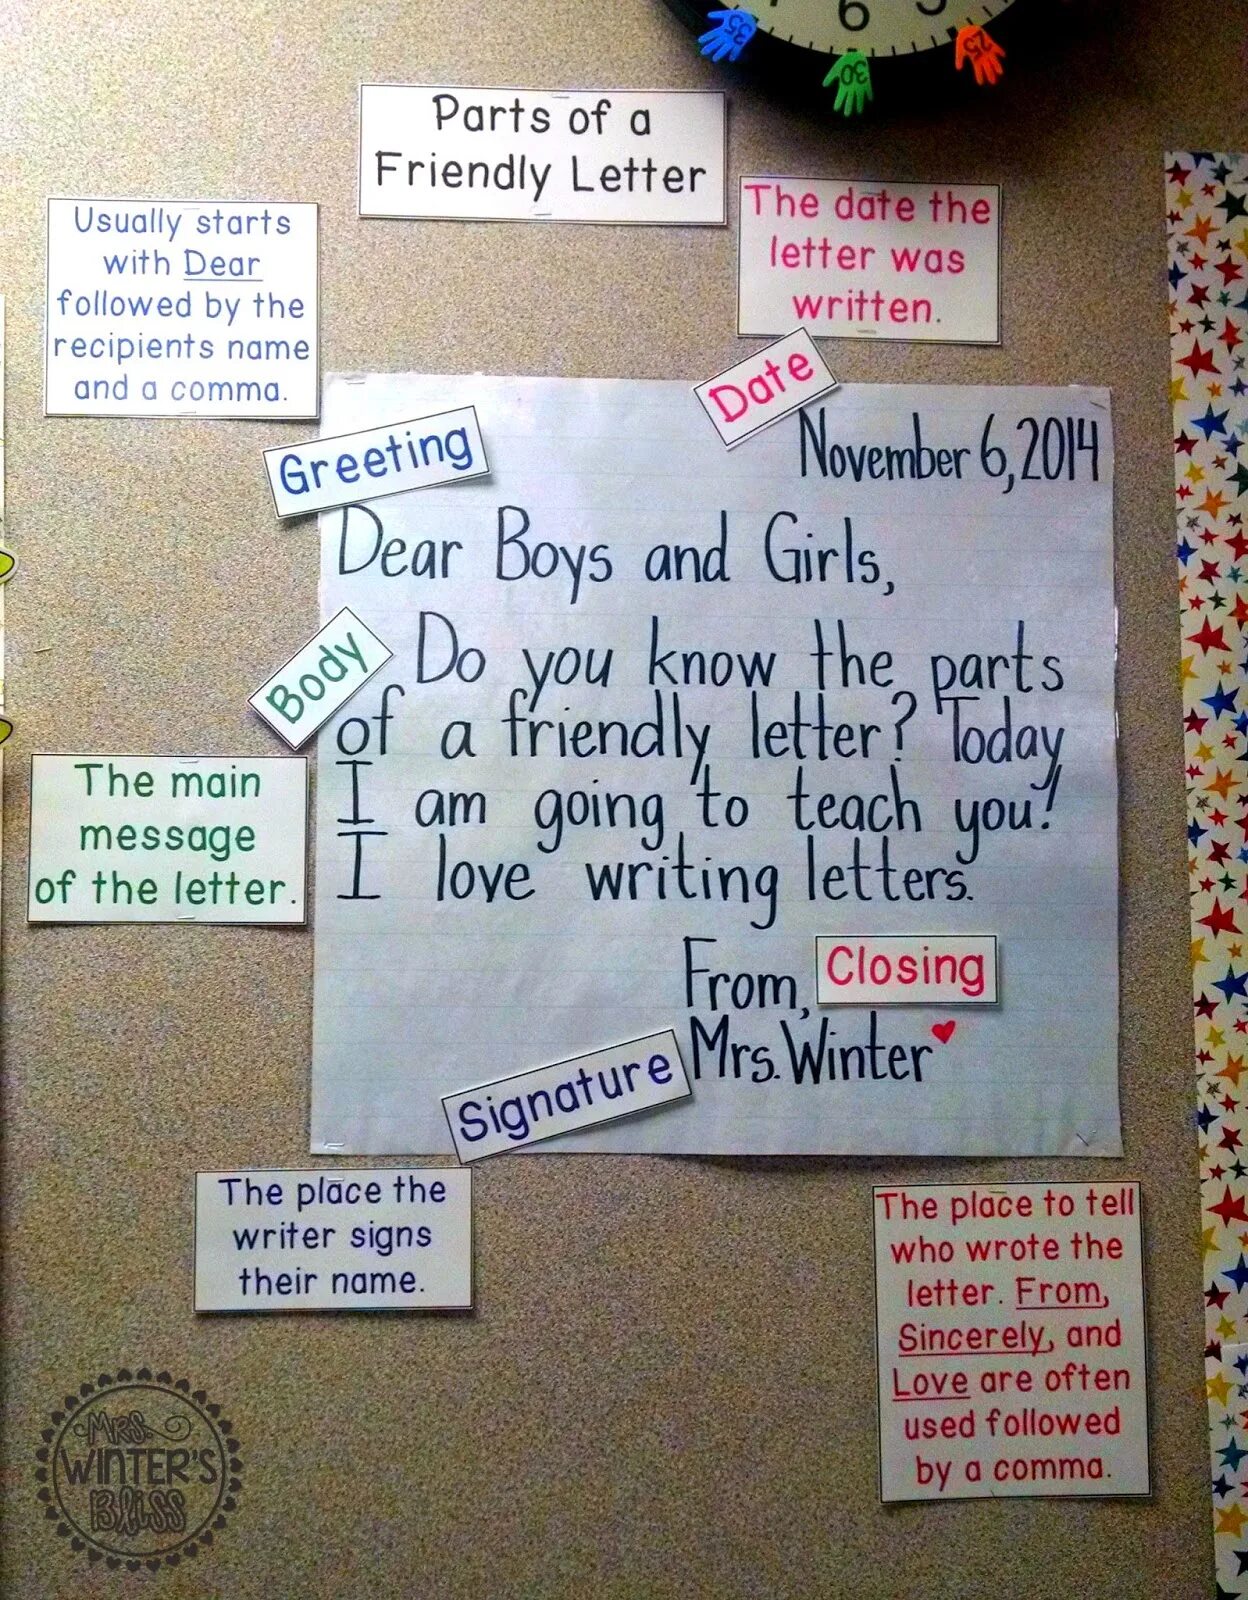 6
35
30
25
Parts of a
Friendly Letter
Usually starts
with Dear
followed by the
recipients name
and a comma.
The date the
letter was
written.
Date
November 6, 2014
Greeting
Dear Boys and Girls,
Body
Do you know the parts
of a friendly letter? Today
I am going to teach you!
I love writing letters.
The main
message
of the letter.
From,
Closing
Mrs. Winter
Signature
The place the
writer signs
their name.
The place to tell
who wrote the
letter. From,
Sincerely, and
Love are often
used followed
by a comma.
MRS.
WINTER'S
BLISS